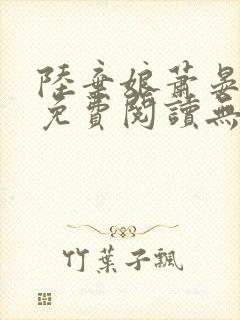 陸棄娘蕭晏
免費閱讀無
竹葉子飄